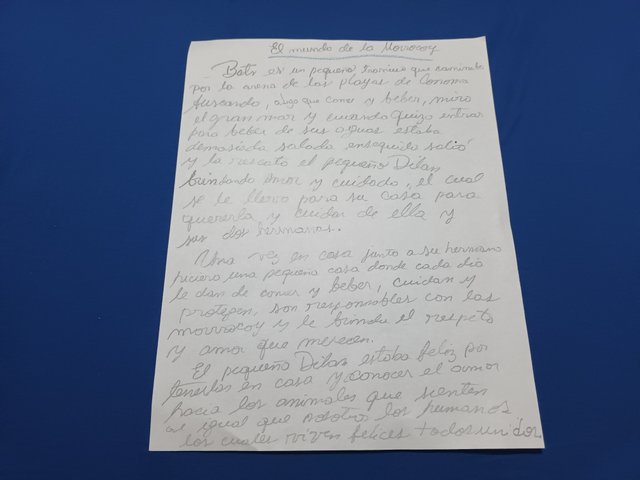 El mundo de la Morrocoy
Bats es un pequeño que caminaba
por la arena de las playas de Conoma
Buscando, algo que comer y beber, miro
el gran mar y cuando quizo entrar
para beber de sus aguas estaba
demasiada salada enseguida salió
y la rescato el pequeño Dilan
brindando amor y cuidado, el cual
se le llevo para su casa para
quererla y cuidar de ella y
sus dos hermanos.
Una vez en casa junto a su hermano
hiciero una pequeña casa donde cada dia
le dan de comer y beber, cuidan y
protegen, son responsables con las
morrocoy y le brinda el respeto
y amor que merecen.
El pequeño Dilan estaba feliz por
tenerlas en casa y conocer el amor
hacia los animales que sienten
al igual que nosotro los humanos
los cuales viven felices todos unidos